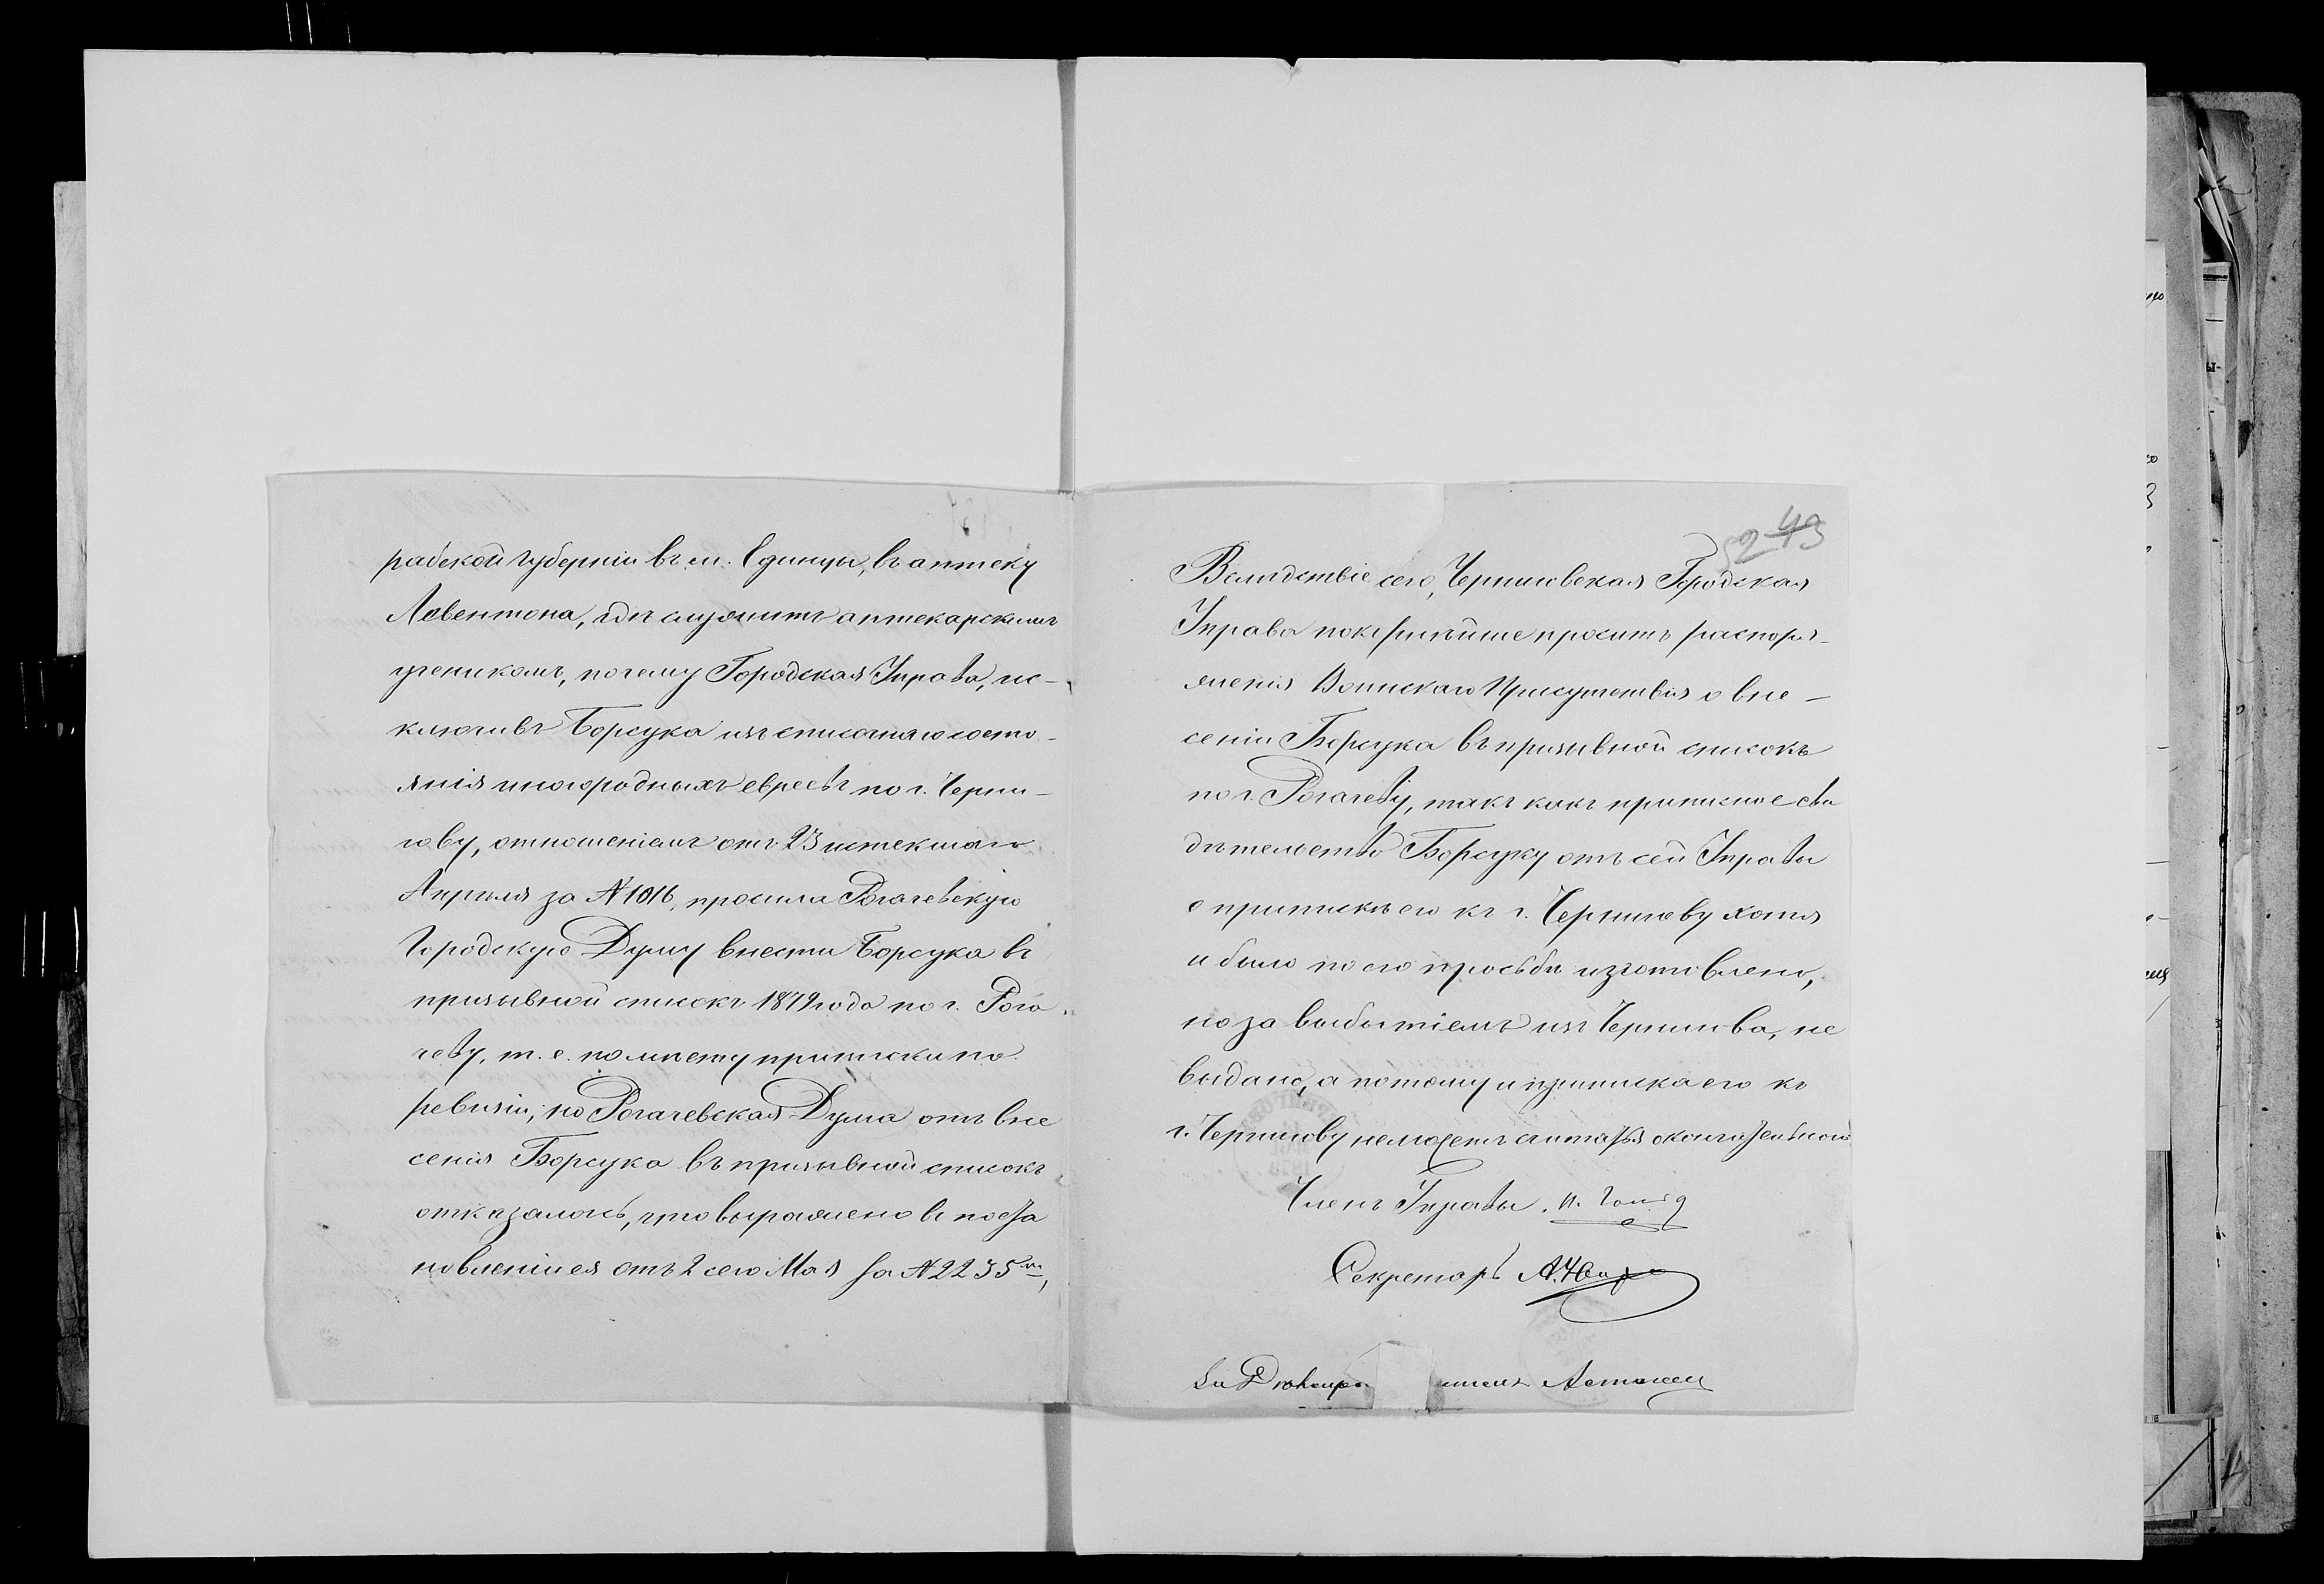 рабской губерніи въ м. Единцы, въ аптеку
Левентона, гдѣ служитъ аптекарскимъ
ученикомъ, почему Городская Управа, ис-
ключивъ Борсука изъ списочнаго состо-
янія иногородныхъ евреевъ по г. Черни-
гову, отношеніемъ отъ 23 истекшаго
Апрѣля за № 1016, просила Рогачевскую
Городскую Думу внести Борсука въ
призывной списокъ 1879 года по г. Рога-
чеву, т. е. по мѣсту приписки по
ревизіи, но Рогачевская Дума отъ вне
сенія Борсука въ призывной списокъ
отказалась, что выражено въ поста
новленіи ея отъ 2 сего Мая за № 2235мъ,
49
52
Вслѣдствіе сего, Черниговская Городская
Управа покорнѣйше проситъ распоря-
женія Воинскаго Присутствія о вне-
сеніи Борсука въ призывной списокъ
по г. Рогачеву, такъ какъ приписное сви
дѣтельство Борсуку отъ сей Управы
о припискѣ его къ г. Чернигову хотя
и было по его просьбѣ изготовлено,
но за выбытіемъ изъ Чернигова, не
выдано, а потому и приписка его къ
г. Чернигову неможетъ считаться окончательной
Членъ Управы.
Секретарь
За